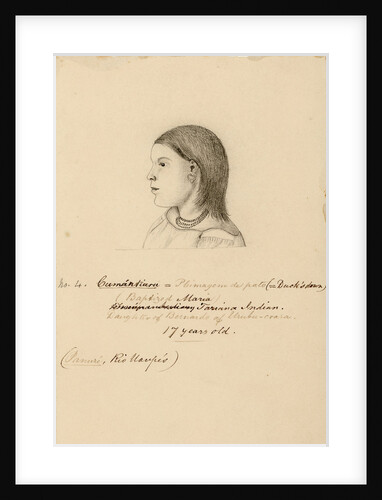 No. 4. Cumántiara = Plumagem de pato (= Duck's down)
(Baptized Maria)
Tariana Indian.
daughter of Bernardo of Urubu-coara.
17 years old.
(Panuré, Rio Uaupés)